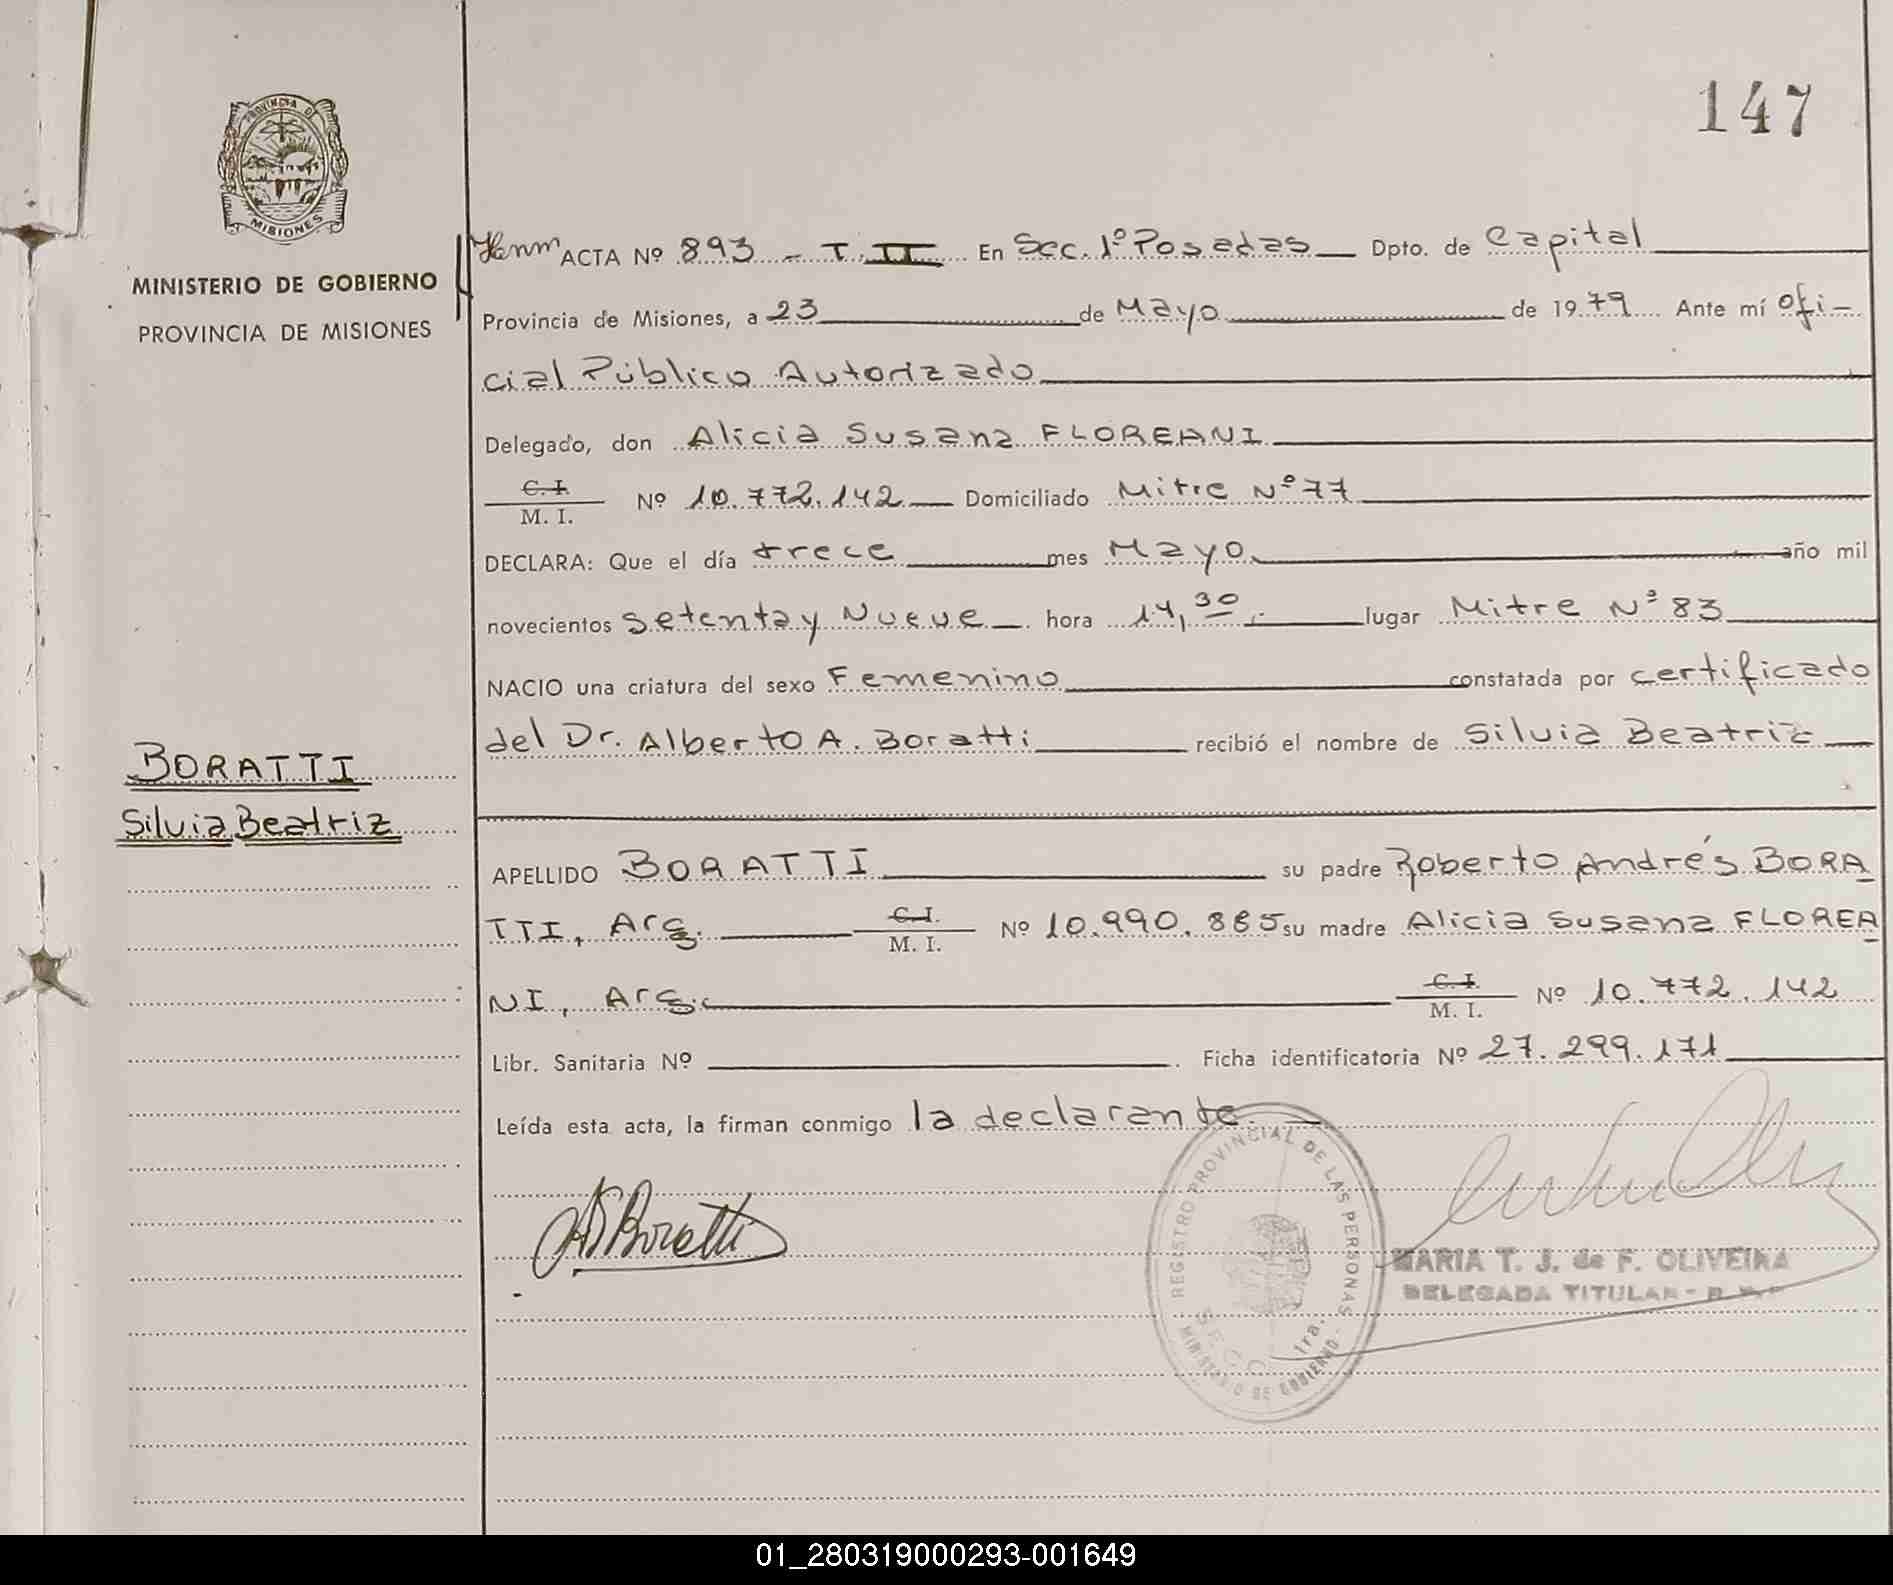 147
PROVINCIA DE
MISIONES
MINISTERIO DE GOBIERNO
PROVINCIA DE MISIONES
BORATTI
Silvia Beatriz
ACTA Nº 893 - T. II En Sec. 1º Posadas Dpto. de Capital
Provincia de Misiones, a 23 de Mayo de 1979 Ante mí Ofi-
cial Público Autorizado
Delegado, don Alicia Susana FLOREANI
C. I.
M. I. Nº 10.772.142 Domiciliado Mitre Nº 77
DECLARA: Que el día trece mes Mayo año mil
novecientos setenta y Nueve hora 14,30 lugar Mitre Nº 83
NACIO una criatura del sexo Femenino constatada por certificado
del Dr. Alberto A. Boratti recibió el nombre de Silvia Beatriz
APELLIDO BORATTI su padre Roberto Andrés BORA
TTI, Arg. C. I. M. I. Nº 10.990.885 su madre Alicia Susana FLOREA
NI, Arg. C. I. M. I. Nº 10.772.142
Libr. Sanitaria Nº . Ficha identificatoria Nº 27.299.171
Leída esta acta, la firman conmigo la declarante.
Boratti
REGISTRO PROVINCIAL DE LAS PERSONAS
SECC. 1ra.
MINISTERIO DE GOBIERNO
MARIA T. J. de F. OLIVEIRA
DELEGADA TITULAR
01_280319000293-001649